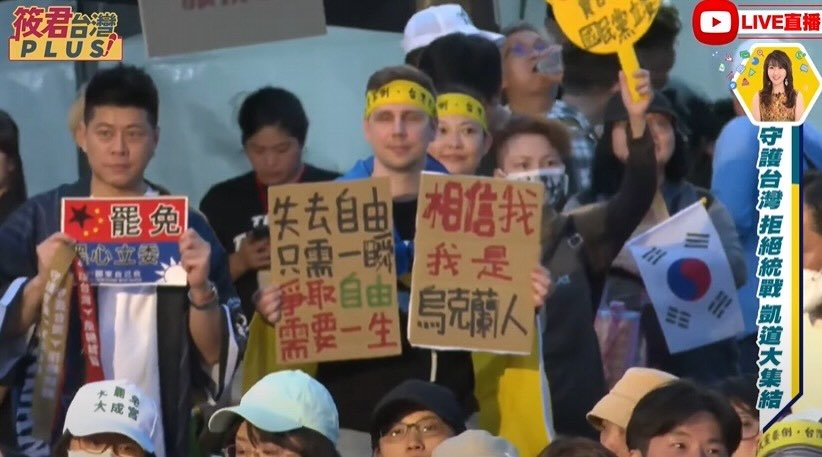 筱君台灣
PLUS!
LIVE直播
守護台灣 拒絕統戰 凱道大集結
國民黨立委
罷免
心立委
失去自由
只需一瞬
爭取自由
需要一生
相信我
我是
烏克蘭人
罷免
大成宮